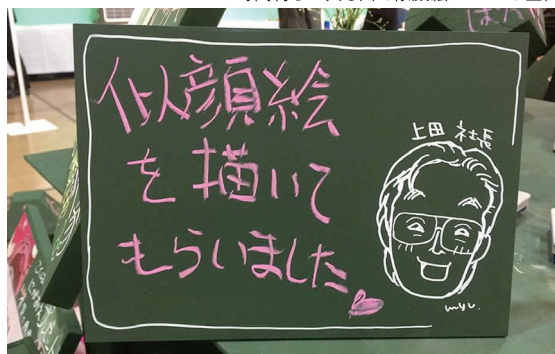 似顔絵
を描いて
もらいました
上田 社長
myu.